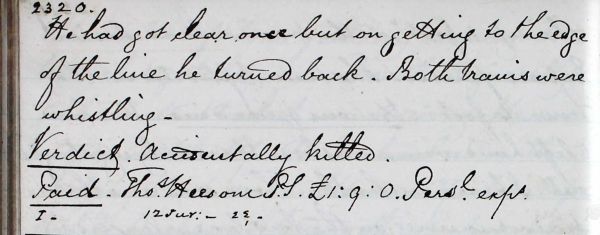 2320.
He had got clear once but on getting to the edge
of the line he turned back. Both trains were
whistling -
Verdict. Accidentally killed.
Paid. Thos. Heesom P.S. £1:9:0. Persl. exps.
I - 12 Jur: -